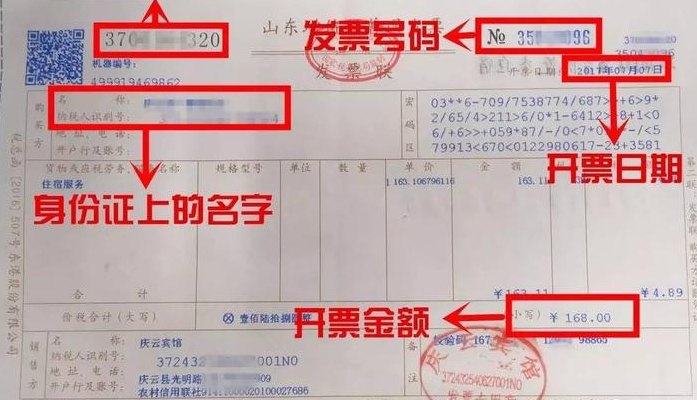 370 320
发票号码
№ 35 096
机器编号:
499919469862
发票联
开票日期: 2017年07月07日
购买方
名 称:
纳税人识别号:
地 址、电 话:
开户行及账号:
密码区
03**6-709/7538774/687>+6>9*
2/65/4>211>6/0*1-6412>+8+1<0
/6+>>+059*87/-/0<7*0 -/<5
79913<670<0122980617-23+3581
身份证上的名字
开票日期
货物或应税劳务、服务名称 规格型号 单位 数量 单价 金额 税额
住宿服务 1 163.106796116 163.11
合 计 ¥163.11 ¥4.89
开票金额
价税合计(大写) ⊗壹佰陆拾捌圆整 (小写) ¥168.00
销售方
名 称: 庆云宾馆
纳税人识别号: 37243 7001N0
地 址、电 话: 庆云县光明路
开户行及账号: 农村信用联社9141 00020100027686
备注
校验码 167 98865
庆云宾馆
372432540627001N0
发票专用章
税总函[2016]507号东港股份有限公司
第二联